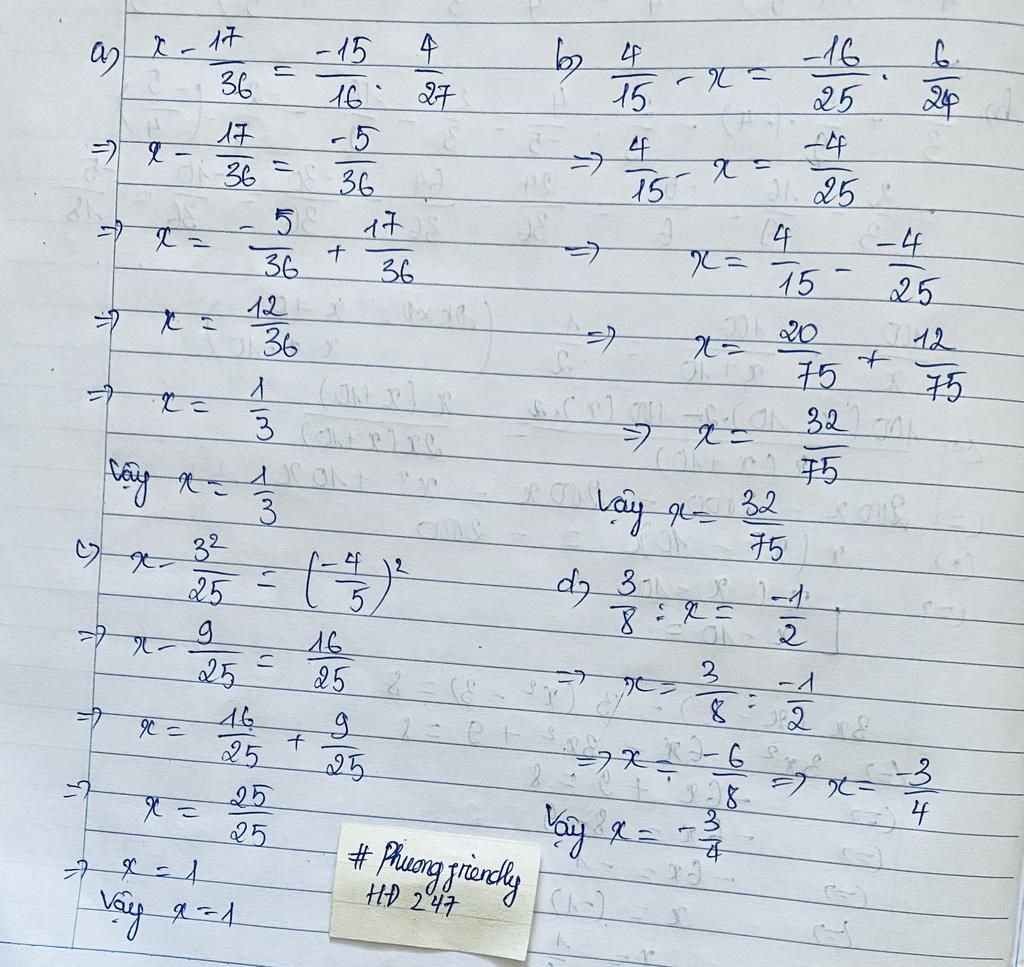 a) x - 17/36 = -15/16 . 4/27
=> x - 17/36 = -5/36
=> x = -5/36 + 17/36
=> x = 12/36
=> x = 1/3
Vậy x = 1/3
b) 4/15 - x = -16/25 . 6/24
=> 4/15 - x = -4/25
=> x = 4/15 - -4/25
=> x = 20/75 + 12/75
=> x = 32/75
Vậy x = 32/75
c) x - 3²/25 = (-4/5)²
=> x - 9/25 = 16/25
=> x = 16/25 + 9/25
=> x = 25/25
=> x = 1
Vậy x = 1
d) 3/8 : x = -1/2
=> x = 3/8 : -1/2
=> x = -6/8 => x = -3/4
Vậy x = -3/4
# Phuongfriendly
HĐ 247